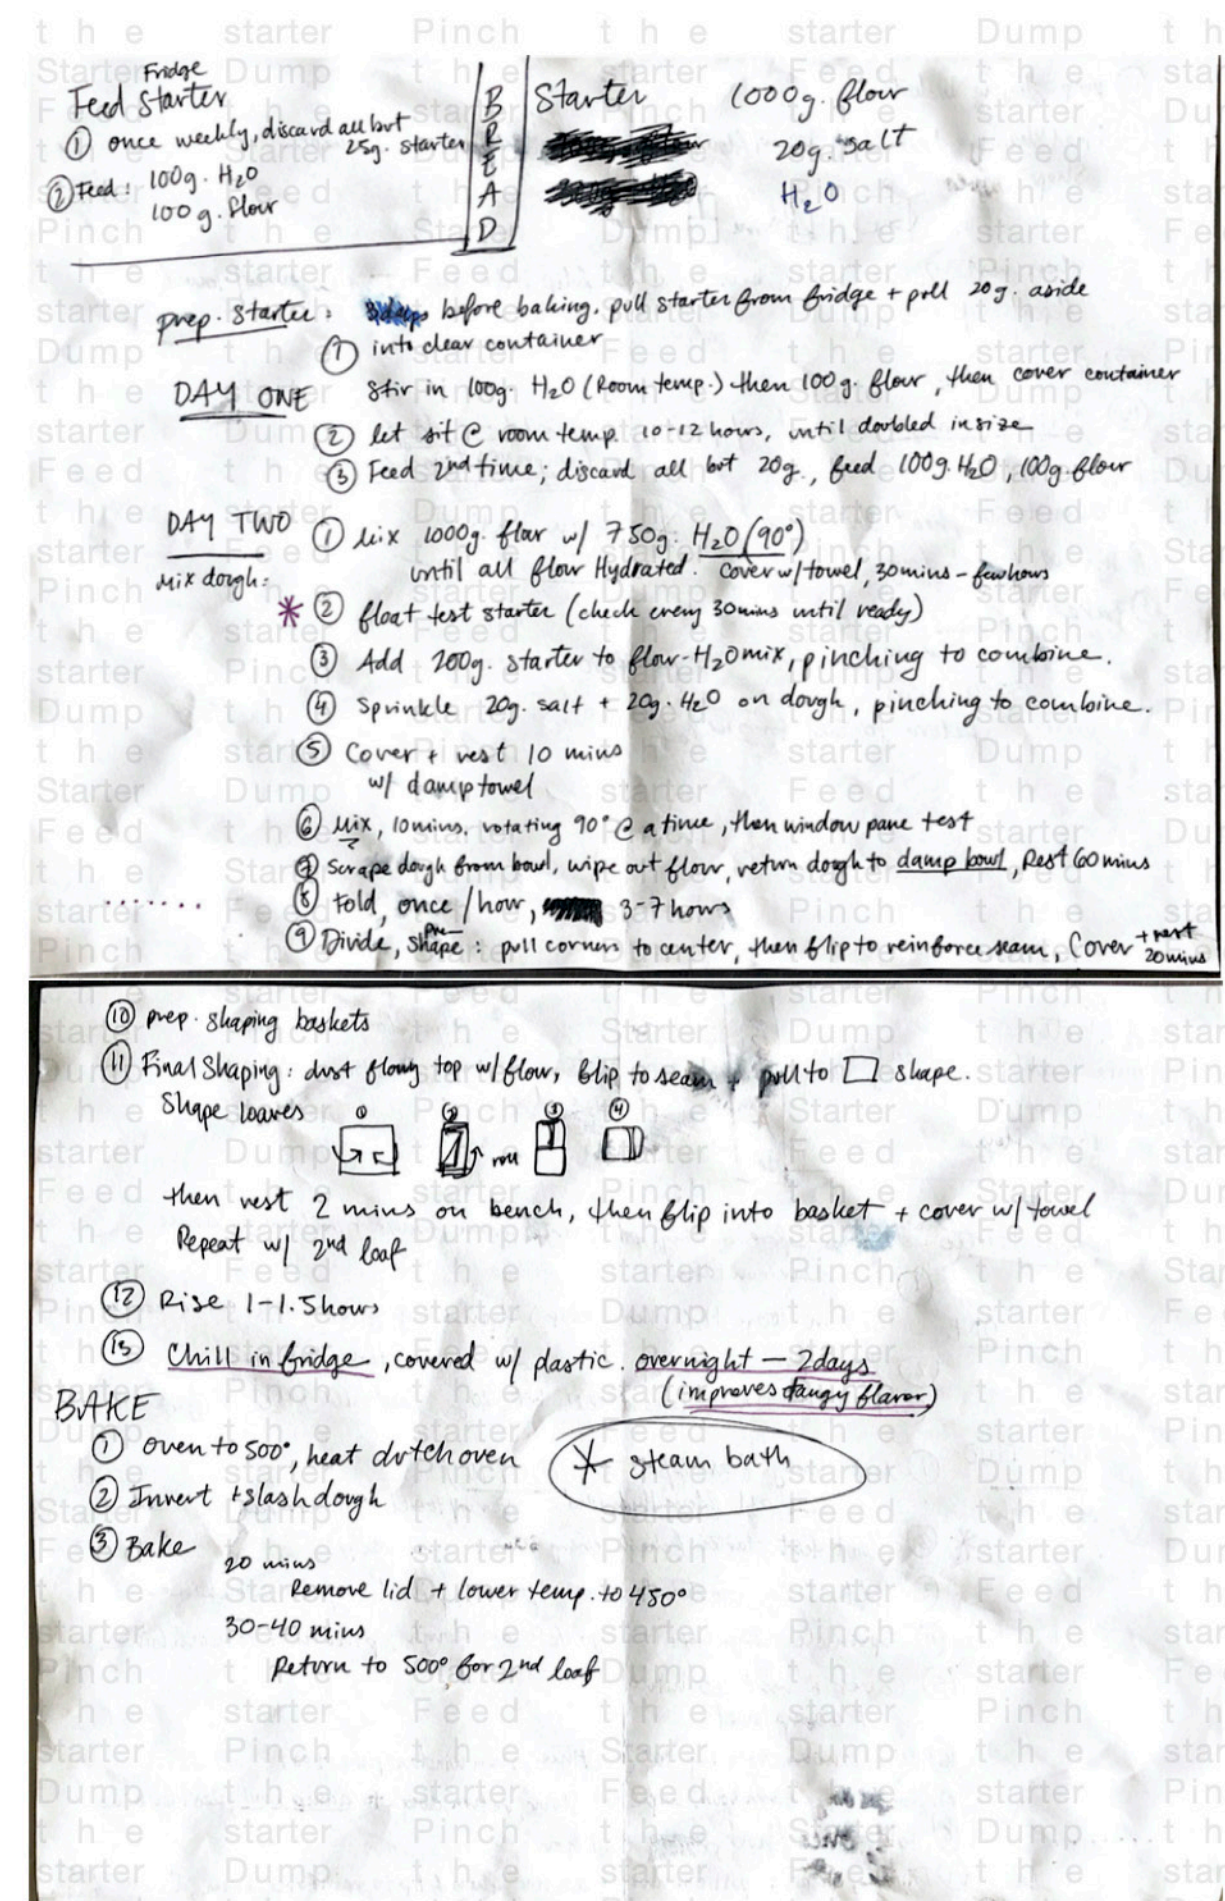 Fridge
Feed Starter
① once weekly, discard all but
25g. starter
② Feed: 100g. H₂O
100g. flour
BREAD
Starter 1000g. flour
20g. salt
H₂O
prep. starter: before baking. pull starter from fridge + pull 20g. aside
① into clear container
DAY ONE Stir in 100g. H₂O (Room temp.) then 100g. flour, then cover container
② let sit @ room temp. 10-12 hours, until doubled in size
③ Feed 2nd time; discard all but 20g., feed 100g. H₂O, 100g. flour
DAY TWO ① Mix 1000g. flour w/ 750g. H₂O (90°)
until all flour Hydrated. cover w/ towel, 30 mins - few hours
Mix dough:
* ② float test starter (check every 30 mins until ready)
③ Add 200g. starter to flour-H₂O mix, pinching to combine.
④ Sprinkle 20g. salt + 20g. H₂O on dough, pinching to combine.
⑤ Cover + rest 10 mins
w/ damp towel
⑥ Mix, 10 mins. rotating 90° @ a time, then window pane test
⑦ Scrape dough from bowl, wipe out flour, return dough to damp bowl, Rest 60 mins
....... ⑧ Fold, once/hour, 3-7 hours
⑨ Divide, pre-shape: pull corners to center, then flip to reinforce seam, Cover + rest 20 mins
⑩ prep. shaping baskets
⑪ Final Shaping: dust top w/ flour, flip to seam + pull to □ shape.
Shape loaves ① ② ③ ④
roll
then rest 2 mins on bench, then flip into basket + cover w/ towel
Repeat w/ 2nd loaf
⑫ Rise 1-1.5 hours
⑬ Chill in fridge, covered w/ plastic. overnight — 2 days
(improves tangy flavor)
BAKE
① oven to 500°, heat dutch oven
* steam bath
② Invert + slash dough
③ Bake
20 mins
Remove lid + lower temp. to 450°
30-40 mins
Return to 500° for 2nd loaf